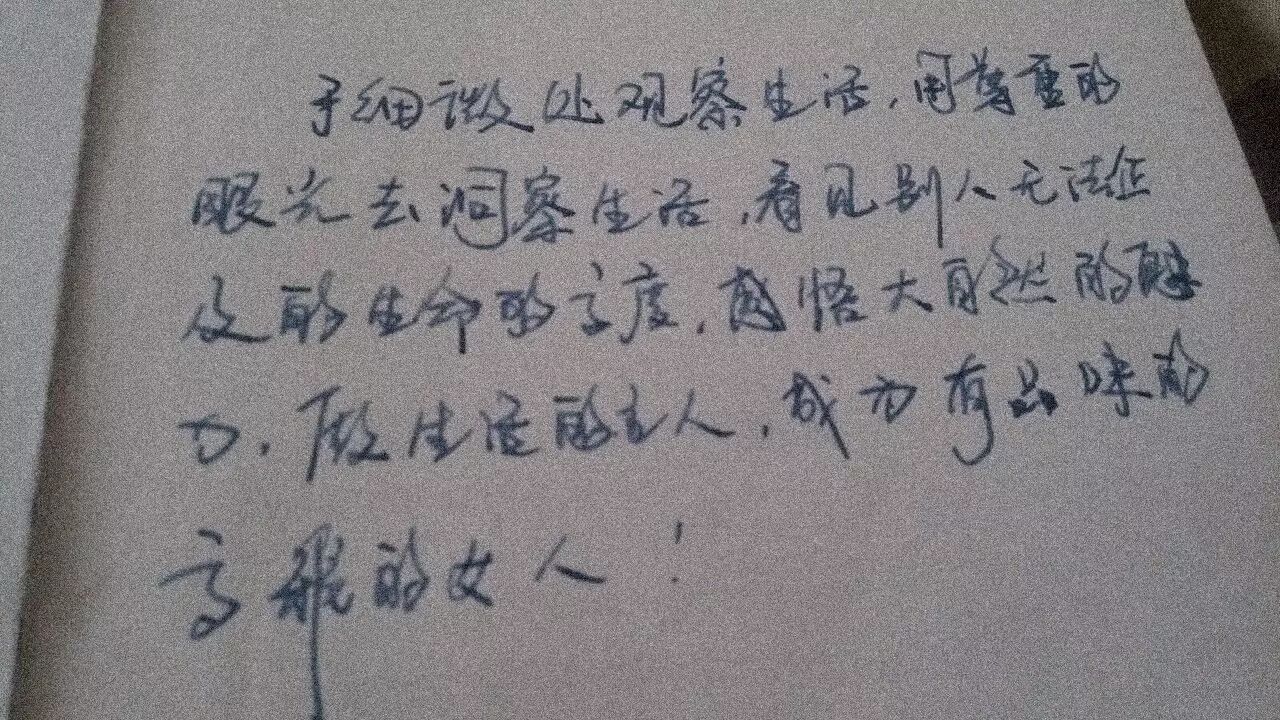 于细微处观察生活，用尊重的
眼光去洞察生活，看见别人无法企
及的生命的高度，感悟大自然的魅
力，做生活的主人，成为有品味的
高雅的女人！